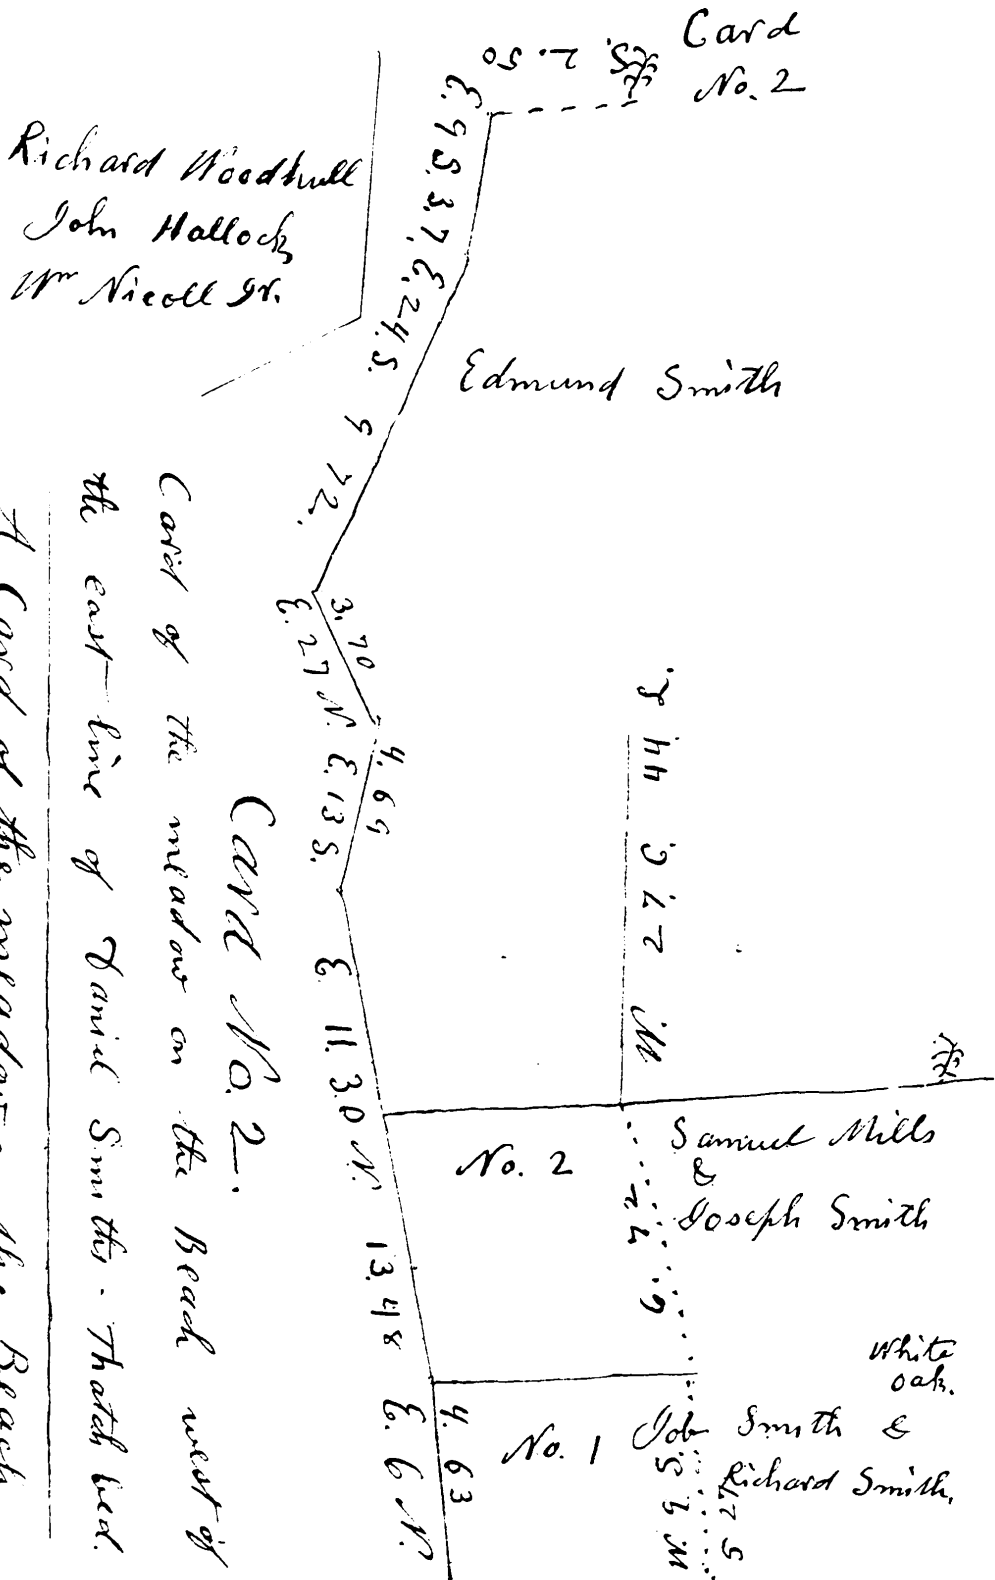 Card
No. 2
S. 2.50
Richard Woodhull
John Hallock
Wm Nicoll Jr.
E. 9 S. 3.7, E, 24. S. 9 72.
Edmund Smith
3. 70
E. 27 N.
4. 69
E. 13 S.
E. 11. 30 N. 13.48
4. 63
E. 6 N.
No. 2
Samuel Mills
&
Joseph Smith
White
oak.
No. 1
Job Smith &
Richard Smith,
Card No. 2.
Card of the meadow on the Beach west of
the east line of Daniel Smiths. Thatch bed.
A Card of the meadow the Beach